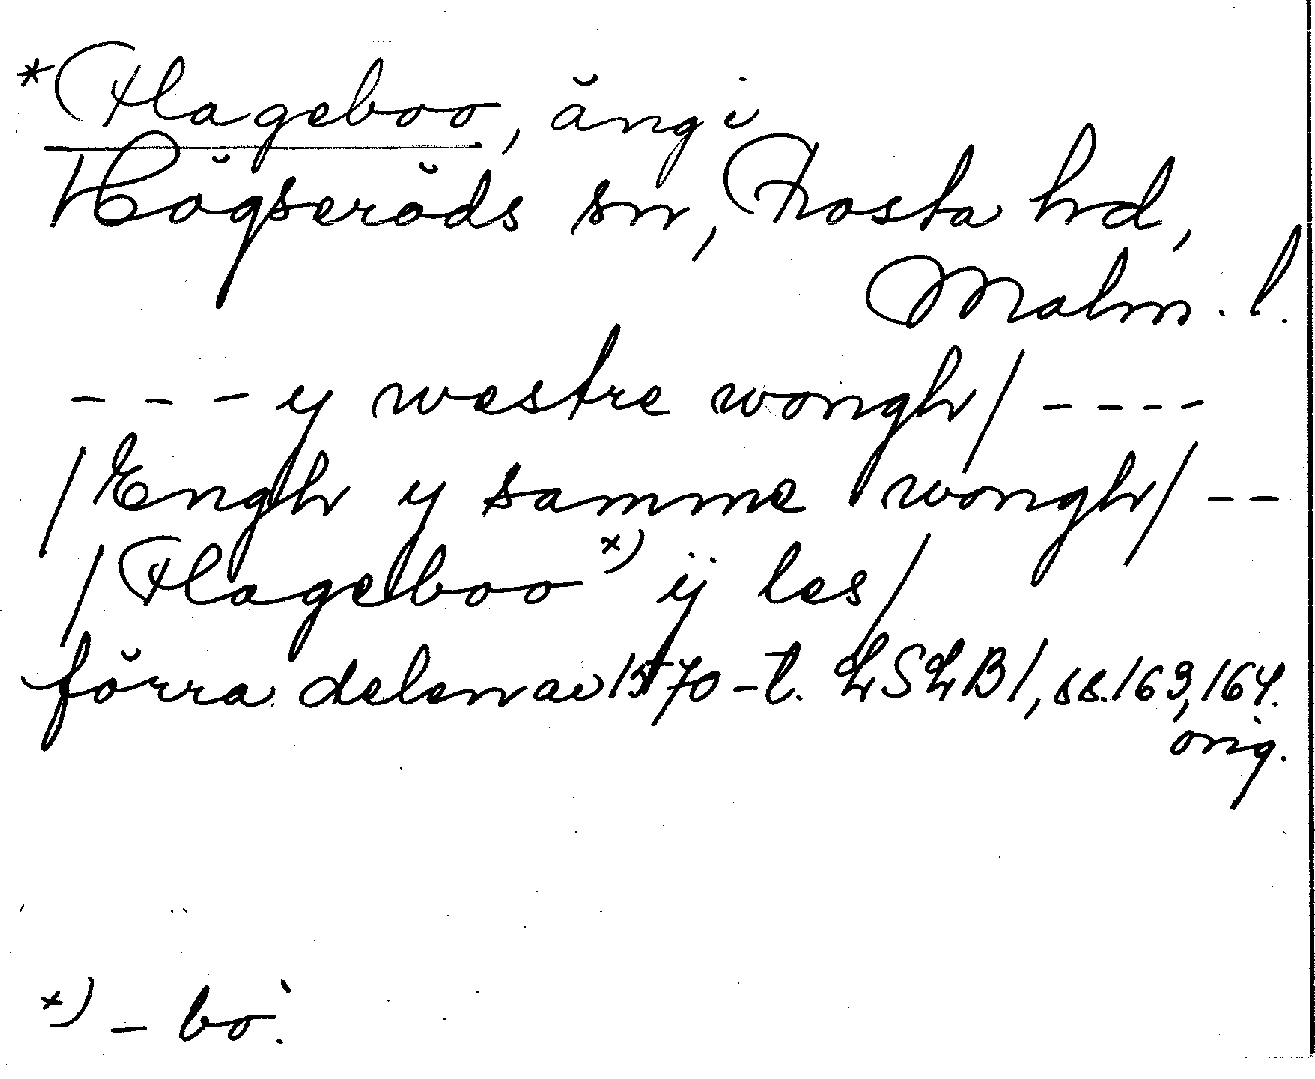 *Hageboo, äng i
Högseröds sn, Frosta hd,
Malm. l.
- - - y westre wongh/ - - - -
/Engh y samme wongh/ - -
/Hageboo x) ÿ les/
förra delen av 1570-t. LSLB1, ss. 163, 164.
orig.
x) - bo.